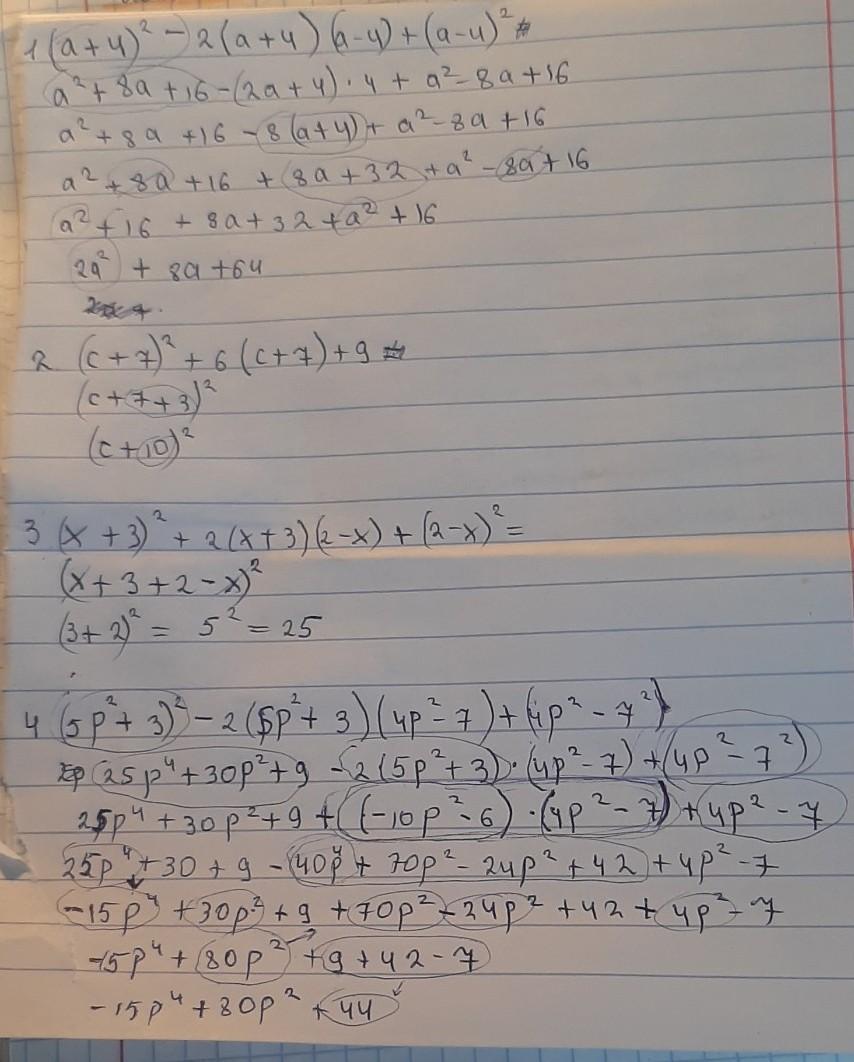 1 (a+4)² - 2(a+4)(a-4)+(a-4)²
a² + 8a + 16 - (2a+4)·4 + a² - 8a + 16
a² + 8a + 16 - 8(a+4) + a² - 8a + 16
a² + 8a + 16 + 8a + 32 + a² - 8a + 16
a² + 16 + 8a + 32 + a² + 16
2a² + 8a + 64
2 (c+7)² + 6(c+7) + 9
(c+7+3)²
(c+10)²
3 (x+3)² + 2(x+3)(2-x) + (2-x)² =
(x+3+2-x)²
(3+2)² = 5² = 25
4 (5p²+3)² - 2(5p²+3)(4p²-7)+(4p²-7²)
(25p⁴+30p²+9 - 2(5p²+3)·(4p²-7)+(4p²-7²)
25p⁴+30p²+9+((-10p²-6)·(4p²-7)+4p²-7
25p⁴+30+9-40p⁴+70p²-24p²+42+4p²-7
-15p⁴+30p²+9+70p²-24p²+42+4p²-7
-15p⁴+80p²+9+42-7
-15p⁴+80p²+44